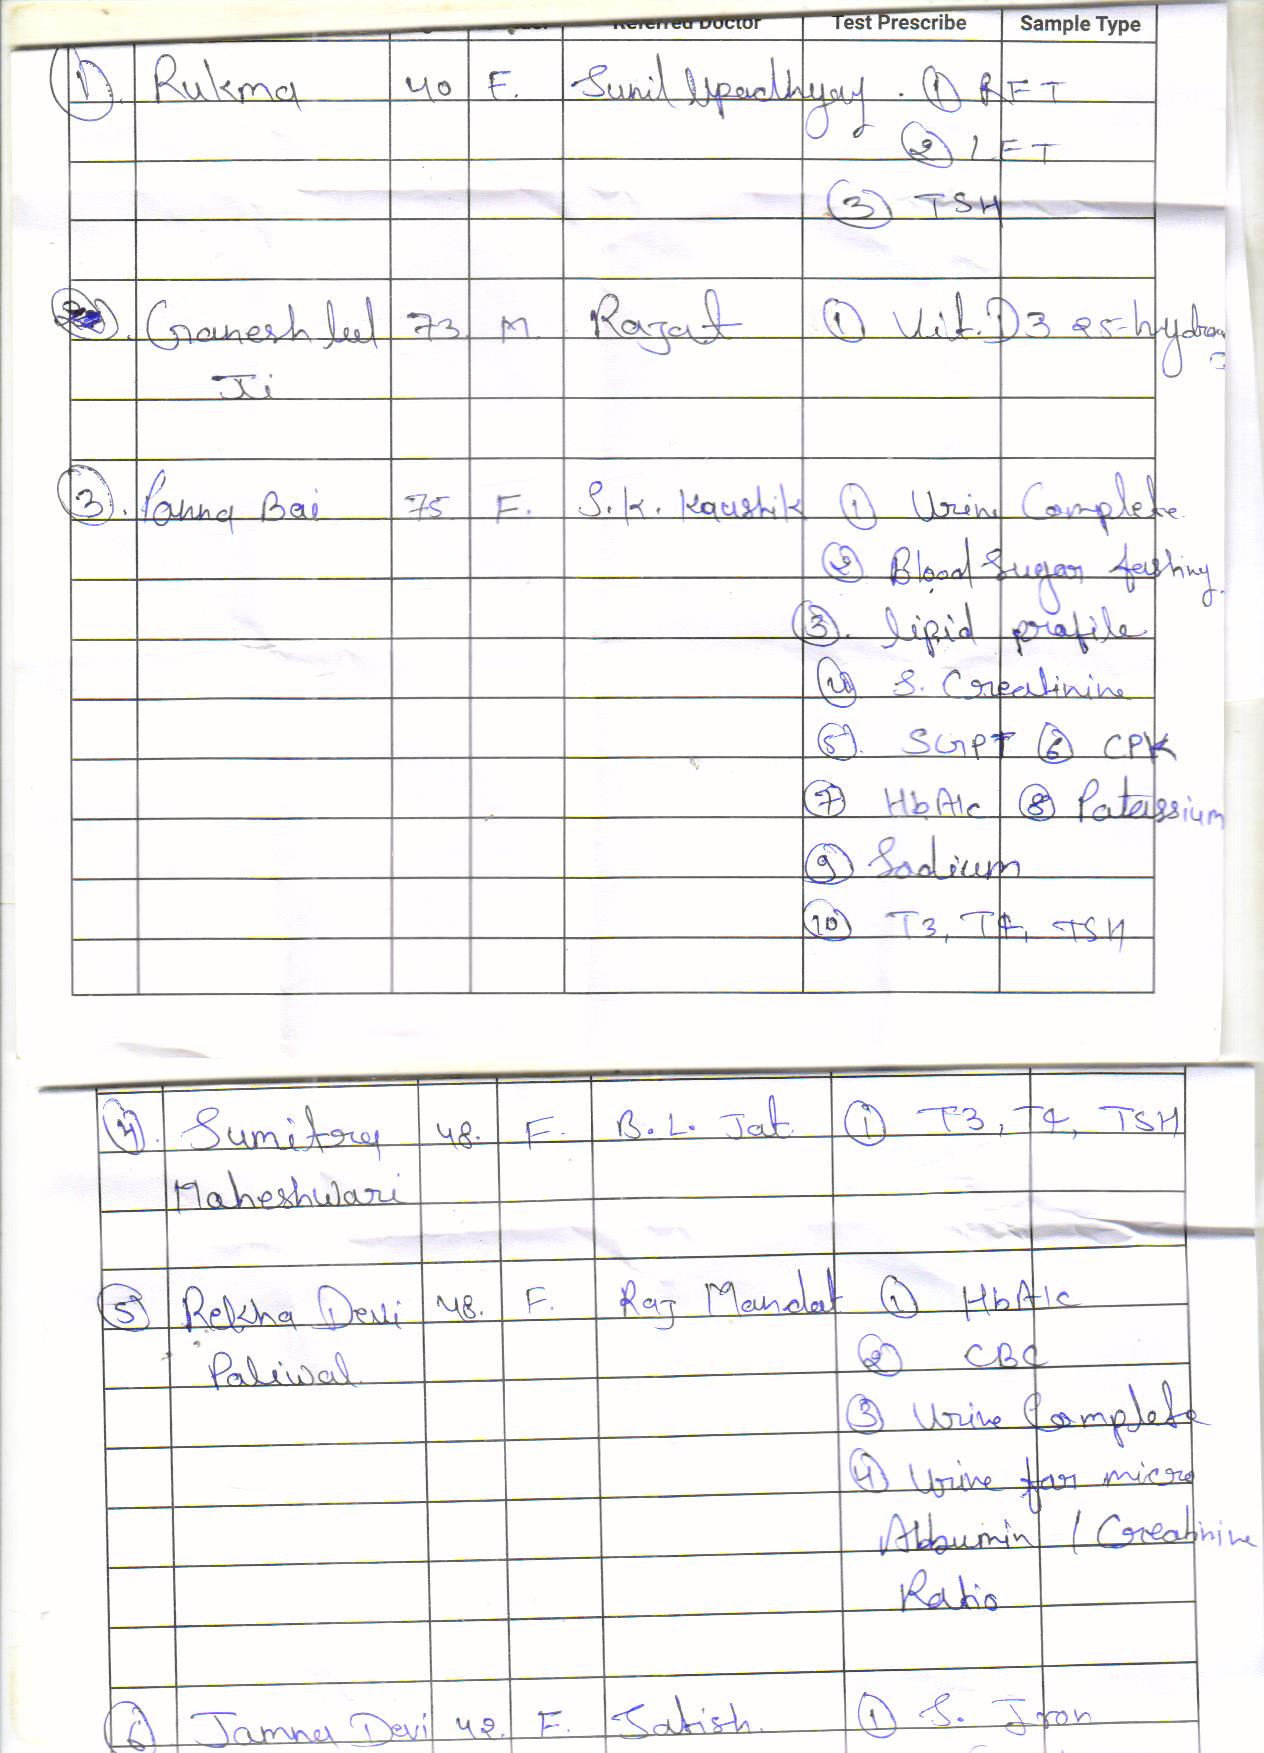 Referred Doctor Test Prescribe Sample Type
1. Rukma 40 F. Sunil Upadhyay. 1 RFT
2 LFT
3 TSH
2. Ganesh lal 73. M. Rajat 1 Vit. D3 25-hydroxy
Ji
3. Panna Bai 75 F. S.K. Kaushik 1 Urine Complete.
2 Blood Sugar fasting.
3. lipid profile
4 S. Creatinine
5. SGPT 6 CPK
7 HbA1c 8 Potassium
9 Sodium
10 T3, T4, TSH
4. Sumitra 48. F. B. L. Jat. 1 T3, T4, TSH
Maheshwari
5 Rekha Devi 48. F. Raj Mandat 1 HbA1c
Paliwal. 2 CBC
3 Urine Complete
4 Urine for micro
Albumin / Creatinine
Ratio
6 Jamna Devi 42. F. Satish. 1 S. Iron